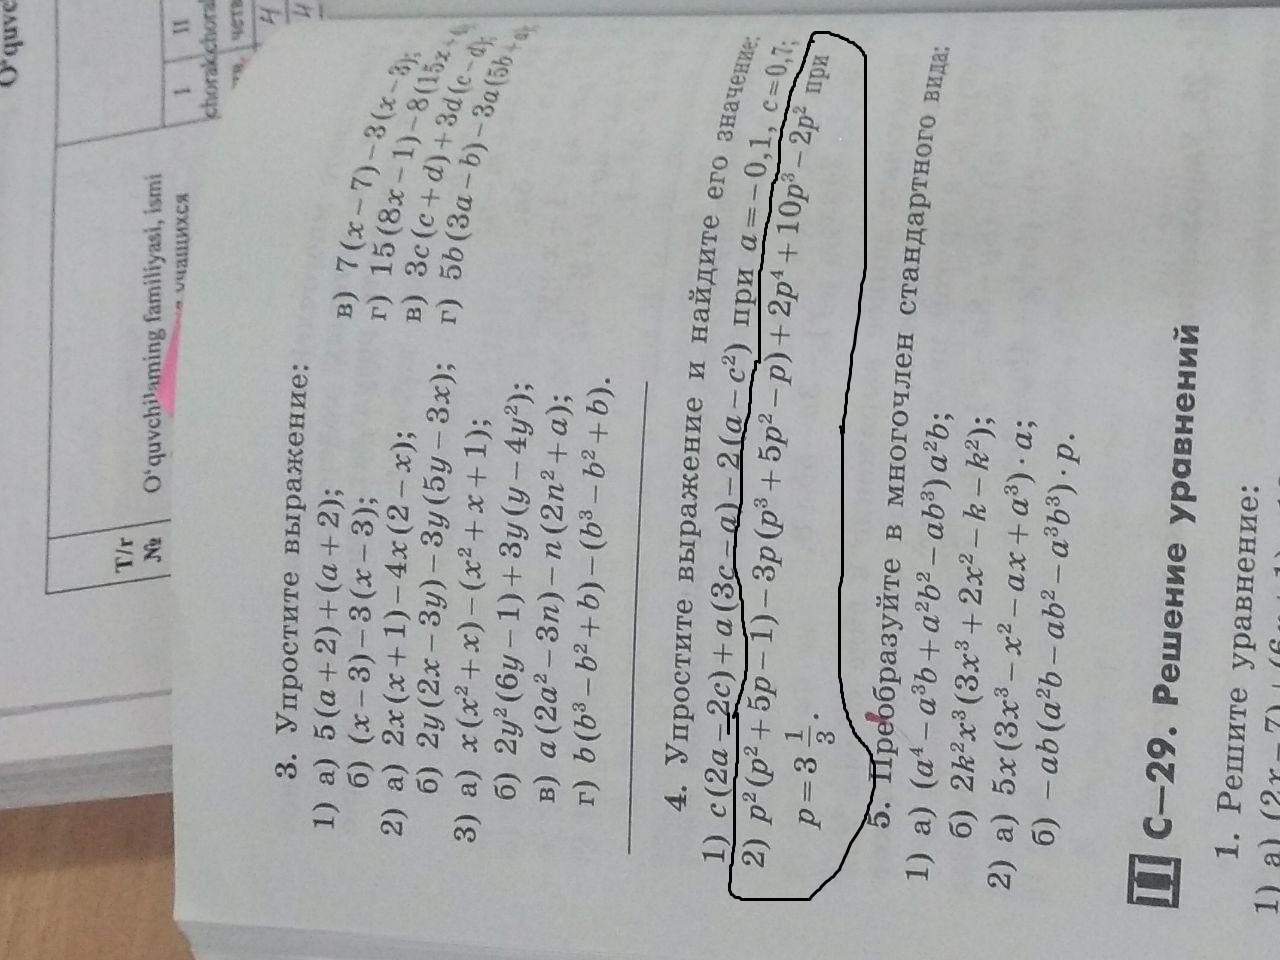 O'quvc
I II
chorak chorak
T/r
№
O'quvchilarning familiyasi, ismi
учащихся
3. Упростите выражение:
1) а) 5(a+2)+(a+2);
б) (x−3)−3(x−3);
в) 7(x−7)−3(x−3);
г) 15(8x−1)−8(15x+
2) а) 2x(x+1)−4x(2−x);
б) 2y(2x−3y)−3y(5y−3x);
в) 3c(c+d)+3d(c−d);
г) 5b(3a−b)−3a(5b+a);
3) а) x(x²+x)−(x²+x+1);
б) 2y²(6y−1)+3y(y−4y²);
в) a(2a²−3n)−n(2n²+a);
г) b(b³−b²+b)−(b³−b²+b).
4. Упростите выражение и найдите его значение:
1) c(2a−2c)+a(3c−a)−2(a−c²) при a=−0,1, c=0,7;
2) p²(p²+5p−1)−3p(p³+5p²−p)+2p⁴+10p³−2p² при
p=3 1/3.
5. Преобразуйте в многочлен стандартного вида:
1) а) (a⁴−a³b+a²b²−ab³)a²b;
б) 2k²x³(3x³+2x²−k−k²);
2) а) 5x(3x³−x²−ax+a³)·a;
б) −ab(a²b−ab²−a³b³)·p.
III С−29. Решение уравнений
1. Решите уравнение:
1) а) (2x−7)+(6x+1)